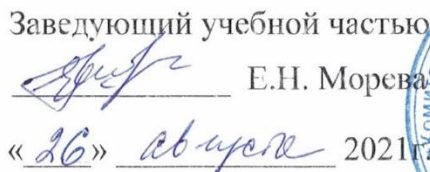 Заведующий учебной частью
Е.Н. Морева
«26» августа 2021г.